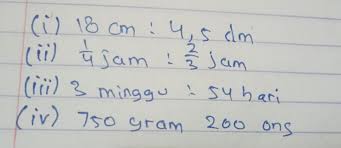 (i) 18 cm : 4,5 dm
(ii) 1/4 jam : 2/3 jam
(iii) 3 minggu : 54 hari
(iv) 750 gram 200 ons